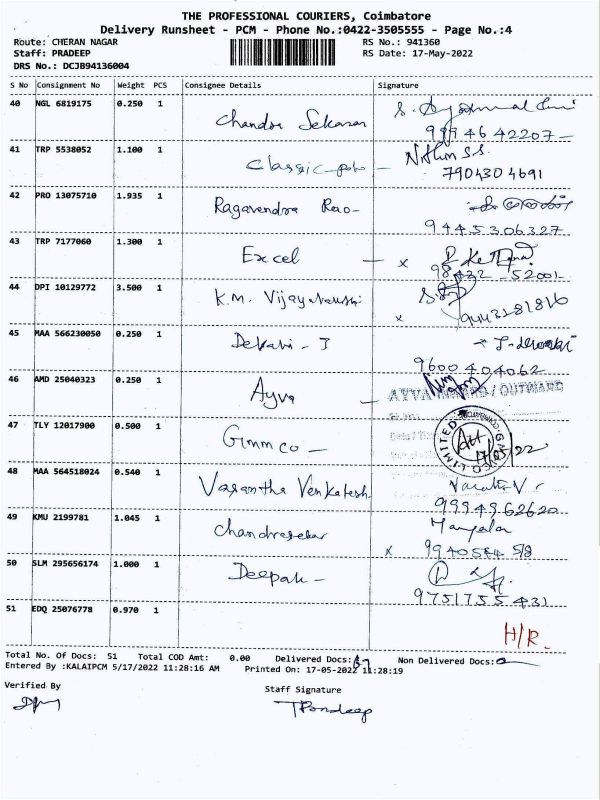 THE PROFESSIONAL COURIERS, Coimbatore
Delivery Runsheet - PCM - Phone No.:0422-3505555 - Page No.:4
Route: CHERAN NAGAR RS No.: 941360
Staff: PRADEEP RS Date: 17-May-2022
DRS No.: DCJB94136004
S No Consignment No Weight PCS Consignee Details Signature
40 NGL 6819175 0.250 1 Chandra Sekaran
99946 42207
41 TRP 5538052 1.100 1 Classic Nithin S.S.
7904304691
42 PRO 13075710 1.935 1 Ragavendra Rao-
9445306327
43 TRP 7177060 1.300 1 Excel - x
44 DPI 10129772 3.500 1 K.M. Vijay
x
45 MAA 566230050 0.250 1 Dekani - J
9600404062
46 AMD 25040323 0.250 1 Ayva - AYVA INWARD / OUTWARD
47 TLY 12017900 0.500 1 Gimmco - LIMITED
17/05/22
48 MAA 564518024 0.540 1 Vasantha Venkatesh
9994962620
49 KMU 2199781 1.045 1 Chandrasekar
x
50 SLM 295656174 1.000 1 Deepak -
9751755431
51 EDQ 25076778 0.970 1
H/R.
Total No. Of Docs: 51 Total COD Amt: 0.00 Delivered Docs: Non Delivered Docs:
Entered By :KALAIPCM 5/17/2022 11:28:16 AM Printed On: 17-05-2022 11:28:19
Verified By Staff Signature